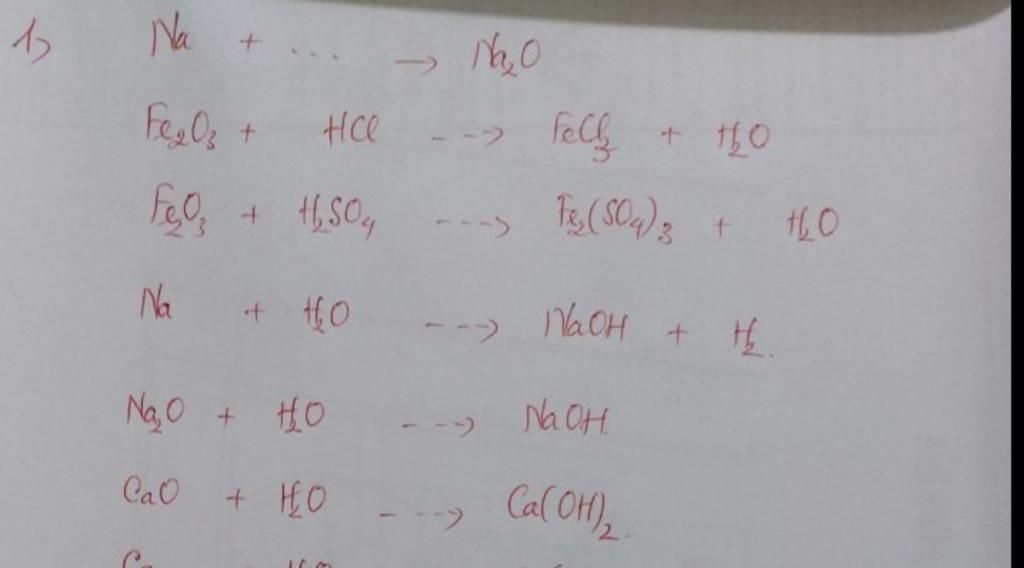 1) Na + ... → Na₂O
Fe₂O₃ + HCl ---> FeCl₃ + H₂O
Fe₂O₃ + H₂SO₄ ---> Fe₂(SO₄)₃ + H₂O
Na + H₂O ---> NaOH + H₂.
Na₂O + H₂O ---> NaOH.
CaO + H₂O ---> Ca(OH)₂.